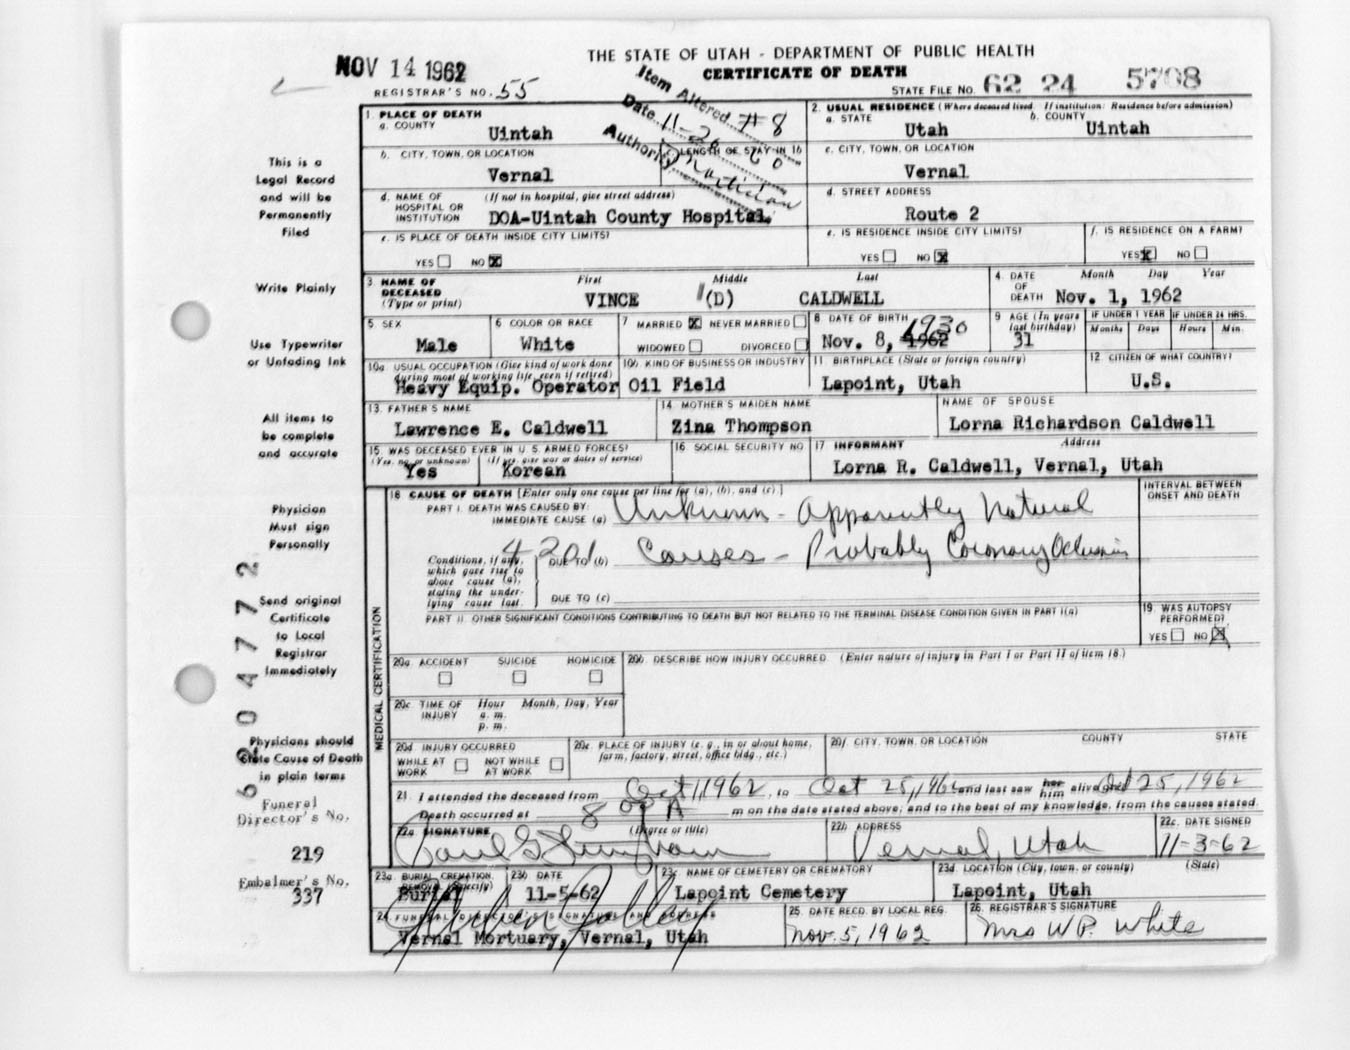 THE STATE OF UTAH - DEPARTMENT OF PUBLIC HEALTH
CERTIFICATE OF DEATH
NOV 14 1962
REGISTRAR'S NO. 55
STATE FILE NO. 62 24 5708
Item Altered #8
Date 11-26-
Authority
This is a
Legal Record
and will be
Permanently
Filed
Write Plainly
Use Typewriter
or Unfading Ink
All items to
be complete
and accurate
Physician
Must sign
Personally
Send original
Certificate
to Local
Registrar
Immediately
Physicians should
State Cause of Death
in plain terms
Funeral
Director's No.
219
Embalmer's No.
337
62 04772
1. PLACE OF DEATH
a. COUNTY
Uintah
2. USUAL RESIDENCE (Where deceased lived. If institution: Residence before admission)
a. STATE
Utah
b. COUNTY
Uintah
b. CITY, TOWN, OR LOCATION
Vernal
LENGTH OF STAY IN 1b
c. CITY, TOWN, OR LOCATION
Vernal
d. NAME OF HOSPITAL OR INSTITUTION
(If not in hospital, give street address)
DOA-Uintah County Hospital
d. STREET ADDRESS
Route 2
e. IS PLACE OF DEATH INSIDE CITY LIMITS?
YES NO X
e. IS RESIDENCE INSIDE CITY LIMITS?
YES NO X
f. IS RESIDENCE ON A FARM?
YES X NO
3. NAME OF DECEASED
(Type or print)
First Middle Last
VINCE (D) CALDWELL
4. DATE OF DEATH
Month Day Year
Nov. 1, 1962
5. SEX
Male
6 COLOR OR RACE
White
7 MARRIED X NEVER MARRIED
WIDOWED DIVORCED
8. DATE OF BIRTH
Nov. 8, 1962 1930
9 AGE (In years last birthday)
31
IF UNDER 1 YEAR IF UNDER 24 HRS.
Months Days Hours Min.
10a. USUAL OCCUPATION (Give kind of work done during most of working life, even if retired)
Heavy Equip. Operator
10b. KIND OF BUSINESS OR INDUSTRY
Oil Field
11 BIRTHPLACE (State or foreign country)
Lapoint, Utah
12. CITIZEN OF WHAT COUNTRY?
U.S.
13. FATHER'S NAME
Lawrence E. Caldwell
14 MOTHER'S MAIDEN NAME
Zina Thompson
NAME OF SPOUSE
Lorna Richardson Caldwell
15. WAS DECEASED EVER IN U.S. ARMED FORCES?
(Yes, no, or unknown) (If yes, give war or dates of service)
Yes Korean
16 SOCIAL SECURITY NO
17 INFORMANT Address
Lorna R. Caldwell, Vernal, Utah
MEDICAL CERTIFICATION
18 CAUSE OF DEATH [Enter only one cause per line for (a), (b), and (c).]
PART I. DEATH WAS CAUSED BY:
IMMEDIATE CAUSE (a) Unknown - Apparently Natural
INTERVAL BETWEEN ONSET AND DEATH
Conditions, if any, which gave rise to above cause (a), stating the underlying cause last.
DUE TO (b) Causes - Probably Coronary Oclusion
DUE TO (c)
PART II. OTHER SIGNIFICANT CONDITIONS CONTRIBUTING TO DEATH BUT NOT RELATED TO THE TERMINAL DISEASE CONDITION GIVEN IN PART I(a)
19. WAS AUTOPSY PERFORMED?
YES NO X
20a. ACCIDENT SUICIDE HOMICIDE
20b. DESCRIBE HOW INJURY OCCURRED. (Enter nature of injury in Part I or Part II of item 18.)
20c. TIME OF INJURY Hour Month, Day, Year
a. m.
p. m.
20d. INJURY OCCURRED
WHILE AT WORK NOT WHILE AT WORK
20e. PLACE OF INJURY (e. g., in or about home, farm, factory, street, office bldg., etc.)
20f. CITY, TOWN, OR LOCATION COUNTY STATE
21. I attended the deceased from Oct 1, 1962, to Oct 25, 1962 and last saw her him alive Oct 25, 1962
Death occurred at 8 00 A m on the date stated above; and to the best of my knowledge, from the causes stated.
22a SIGNATURE (Degree or title)
22b ADDRESS
Vernal, Utah
22c. DATE SIGNED
11-3-62
23a. BURIAL, CREMATION, REMOVAL (Specify)
Burial
23b DATE
11-5-62
23c. NAME OF CEMETERY OR CREMATORY
Lapoint Cemetery
23d LOCATION (City, town, or county) (State)
Lapoint, Utah
24 FUNERAL DIRECTOR'S SIGNATURE AND ADDRESS
Vernal Mortuary, Vernal, Utah
25. DATE RECD. BY LOCAL REG.
Nov. 5, 1962
26. REGISTRAR'S SIGNATURE
Mrs W.P. White